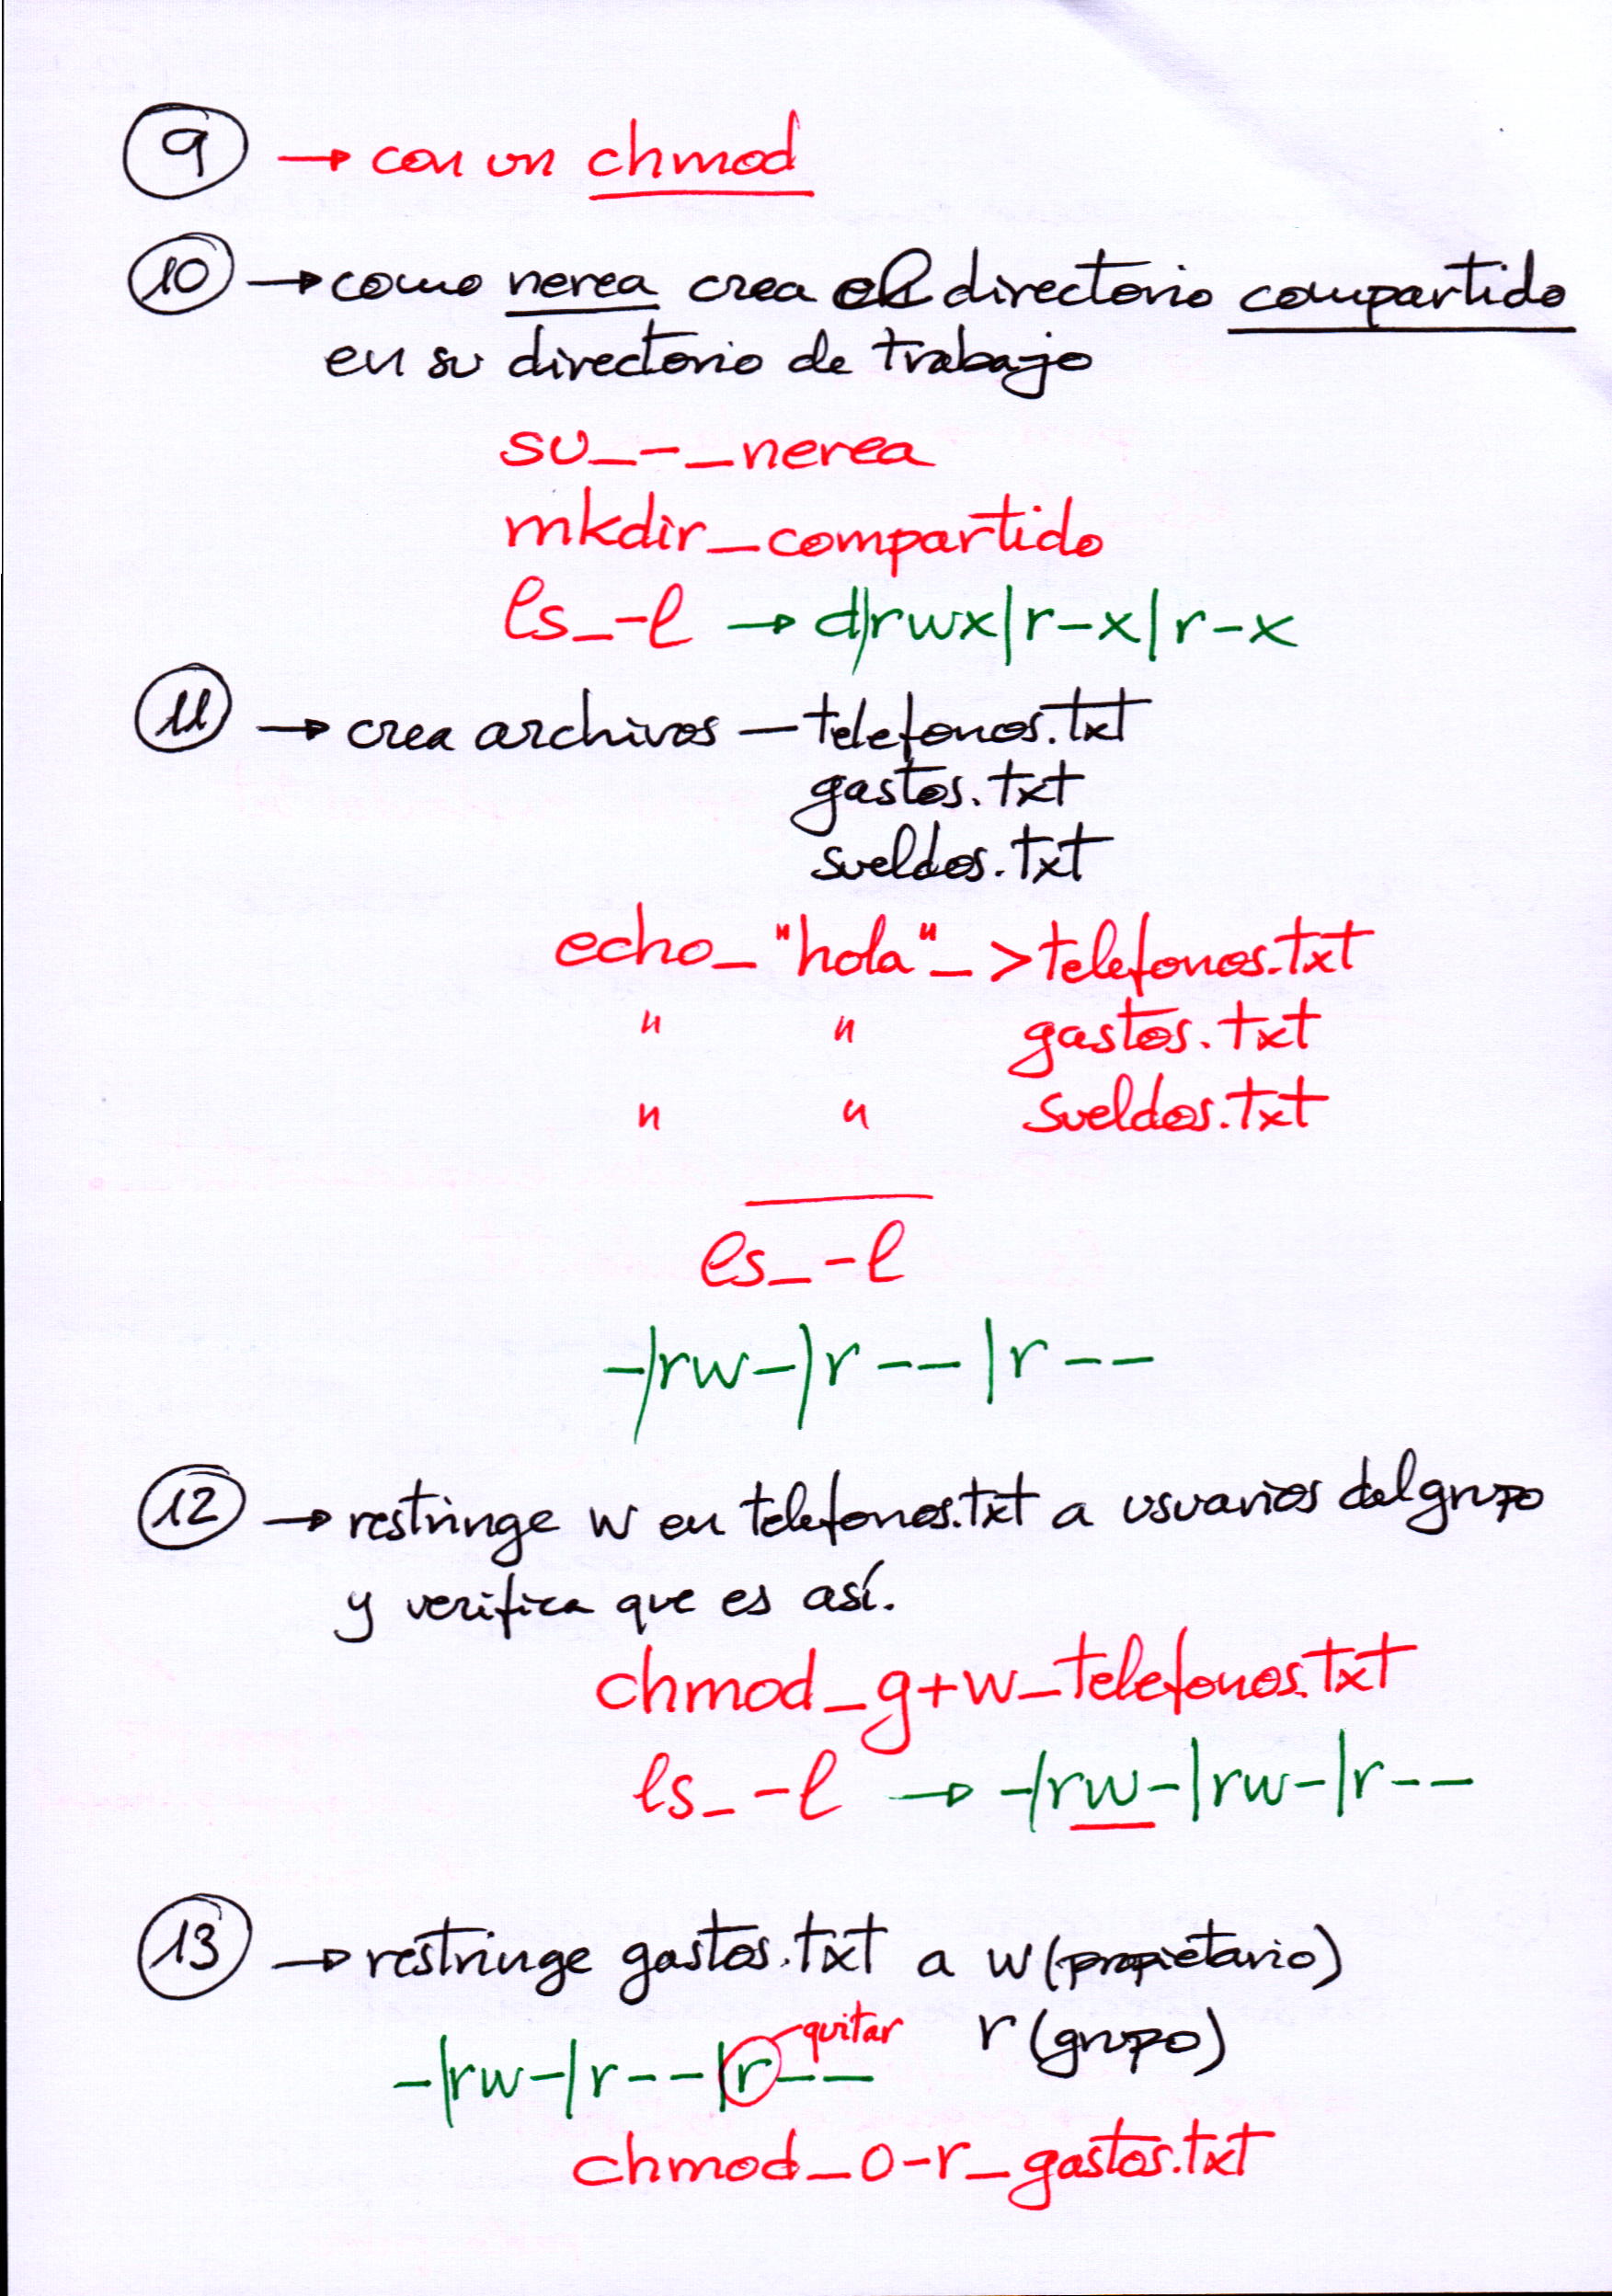 9 → con un chmod
10 → como nerea crea el directorio compartido
en su directorio de trabajo
su_-_nerea
mkdir_compartido
ls_-l → d|rwx|r-x|r-x
11 → crea archivos - telefonos.txt
gastos.txt
sueldos.txt
echo_"hola"_>telefonos.txt
" " gastos.txt
" " sueldos.txt
ls_-l
-|rw-|r--|r--
12 → restringe w en telefonos.txt a usuarios del grupo
y verifica que es así.
chmod_g+w_telefonos.txt
ls_-l → -|rw-|rw-|r--
13 → restringe gastos.txt a w (propietario)
quitar r (grupo)
-|rw-|r--|r--
chmod_o-r_gastos.txt